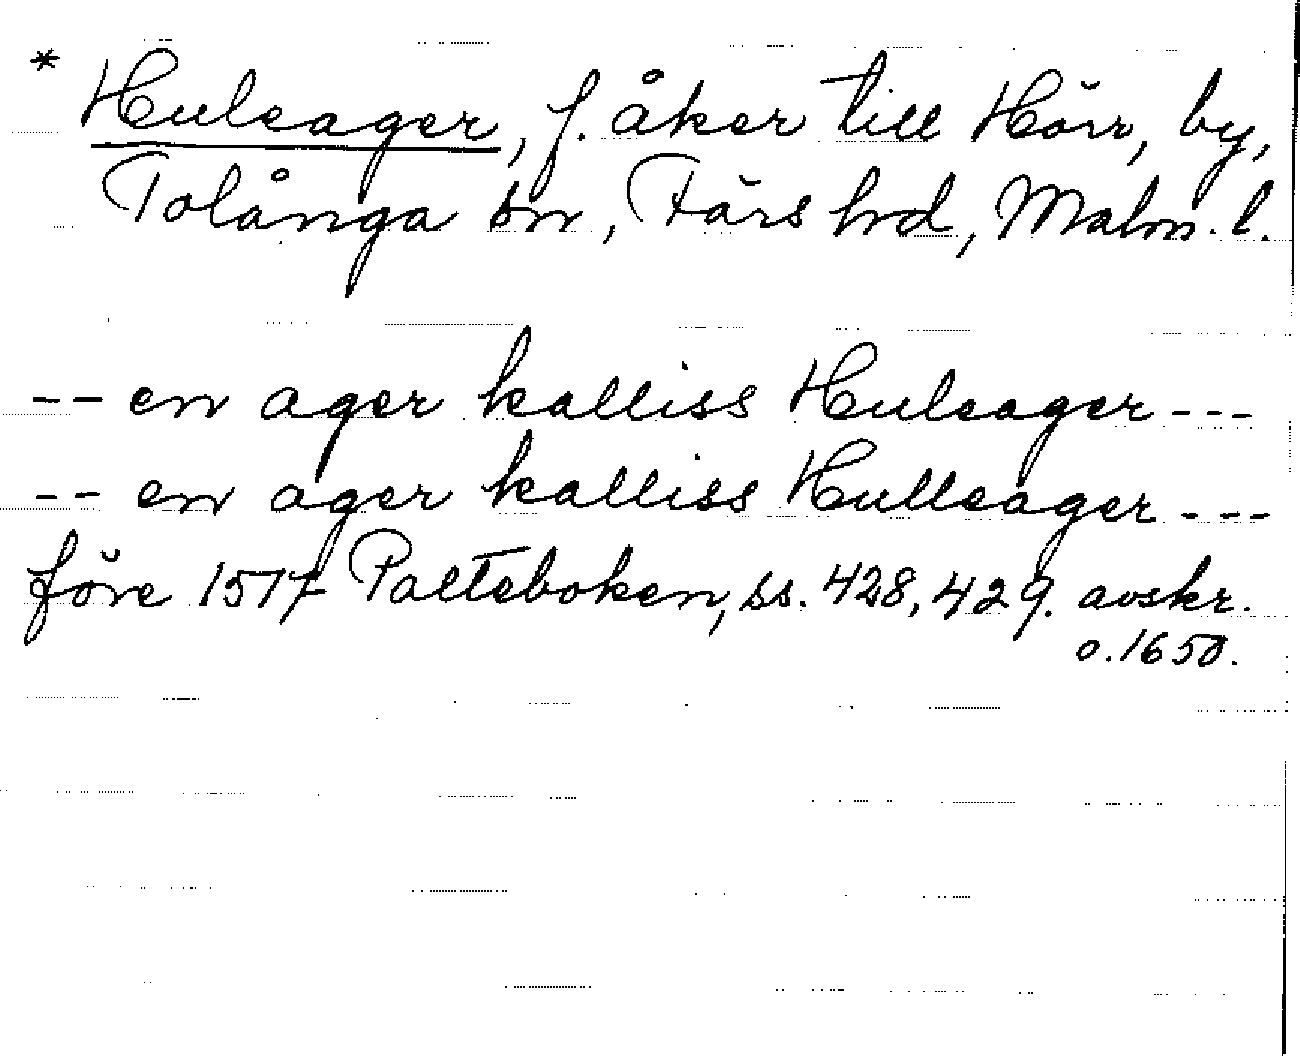 * Huleager, f. åker till Hörr, by,
Tolånga sn, Färs hd, Malm. l.
-- en ager kalliss Huleager ---
-- en ager kalliss Hulleager ---
före 1517 Palteboken, ss. 428, 429. avskr.
o. 1650.